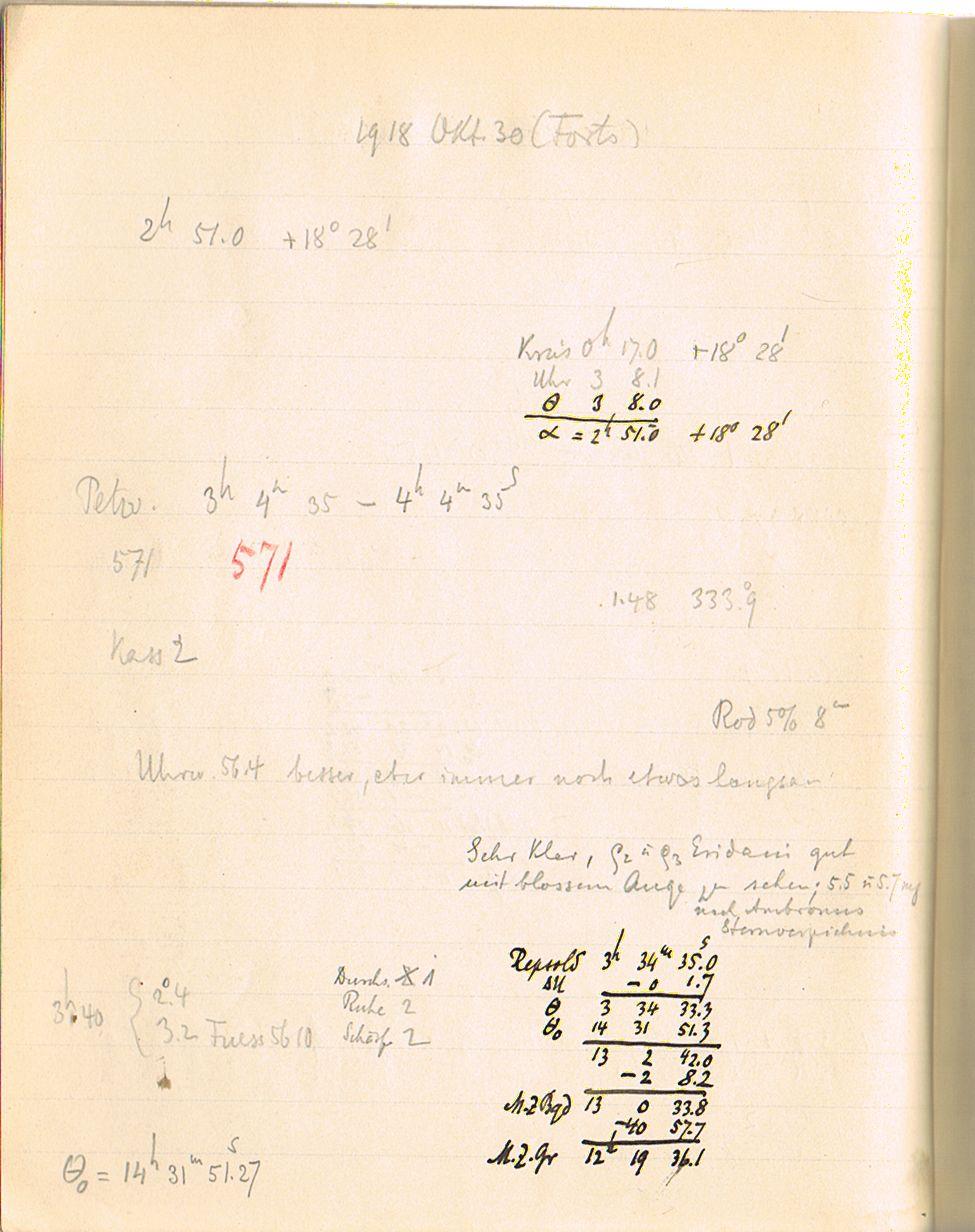 1918 Okt. 30 (Forts)
2h 51.0 +18° 28'
Kreis 0h 17.0 +18° 28'
Uhr 3 8.1
θ 3 8.0
α = 2h 51.0 +18° 28'
Petzv. 3h 4m 35 - 4h 4m 35s
571 571
1.48 333.°9
Kass 2
Rod 5% 8m
Uhrw. 56.4 besser, aber immer noch etwas langsam
Sehr klar, ρ2 u ρ3 Eridani gut
mit blossem Auge zu sehen; 5.5 u 5.7 mg
nach Ambronns
Sternverzeichnis
Repsold 3h 34m 35.s0
ΔU - 0 1.7
θ 3 34 33.3
θ0 14 31 51.3
13 2 42.0
- 2 8.2
M.Z Bgd 13 0 33.8
-40 57.7
M.Z. Gr 12h 19 36.1
3h 40 { 2.°4
3.2 Fuess 5610
Durchs. 1
Ruhe 2
Schärfe 2
θ0 = 14h 31m 51.s27